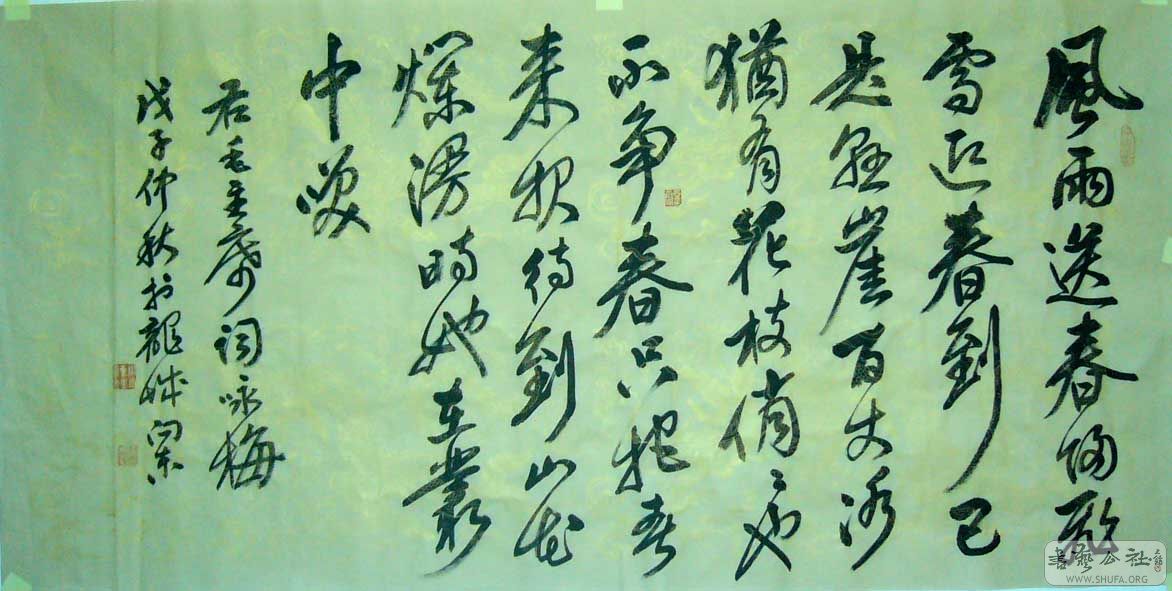 風雨送春歸飛
雪迎春到已
是懸崖百丈冰
猶有花枝俏〻也
不爭春只把春
來報待到山花
爛漫時她在叢
中笑
右毛主席詞咏梅
戊子仲秋於龍城
書藝公社
WWW.SHUFA.ORG